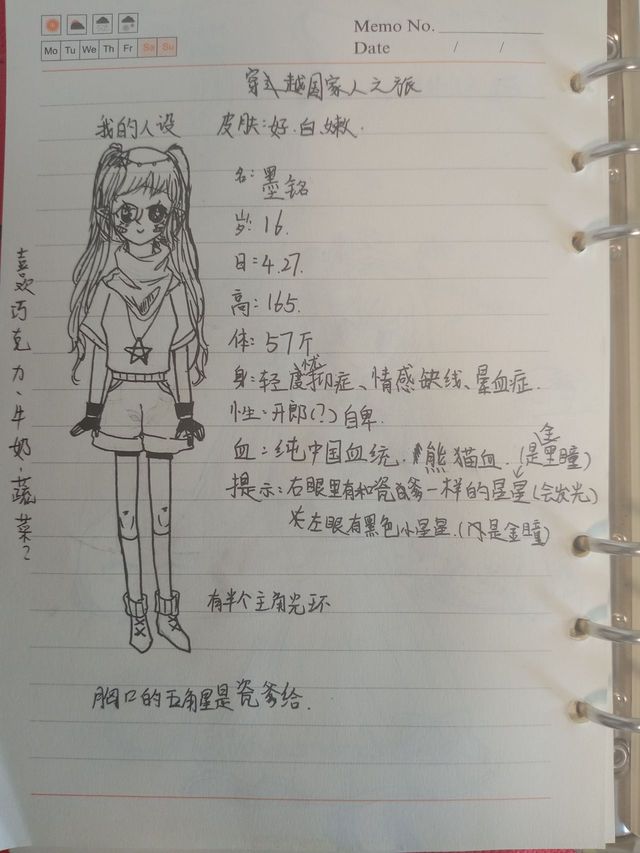 Memo No.
Mo Tu We Th Fr Sa Su
Date / /
穿越国家人之旅
我的人设
皮肤:好.白.嫩.
名:墨铭
岁:16.
日:4.27.
高:165.
体:57斤
身:轻度抑忧症、情感缺线、晕血症.
性:开郎(?)自卑.
血:纯中国血统.熊猫血.(是金瞳)
提示:右眼里有和瓷爹一样的星星(会发光)
左眼有黑色小星星.(是金瞳)
喜欢巧克力、牛奶、蔬菜?
有半个主角光环
胸口的五角星是瓷爹给.